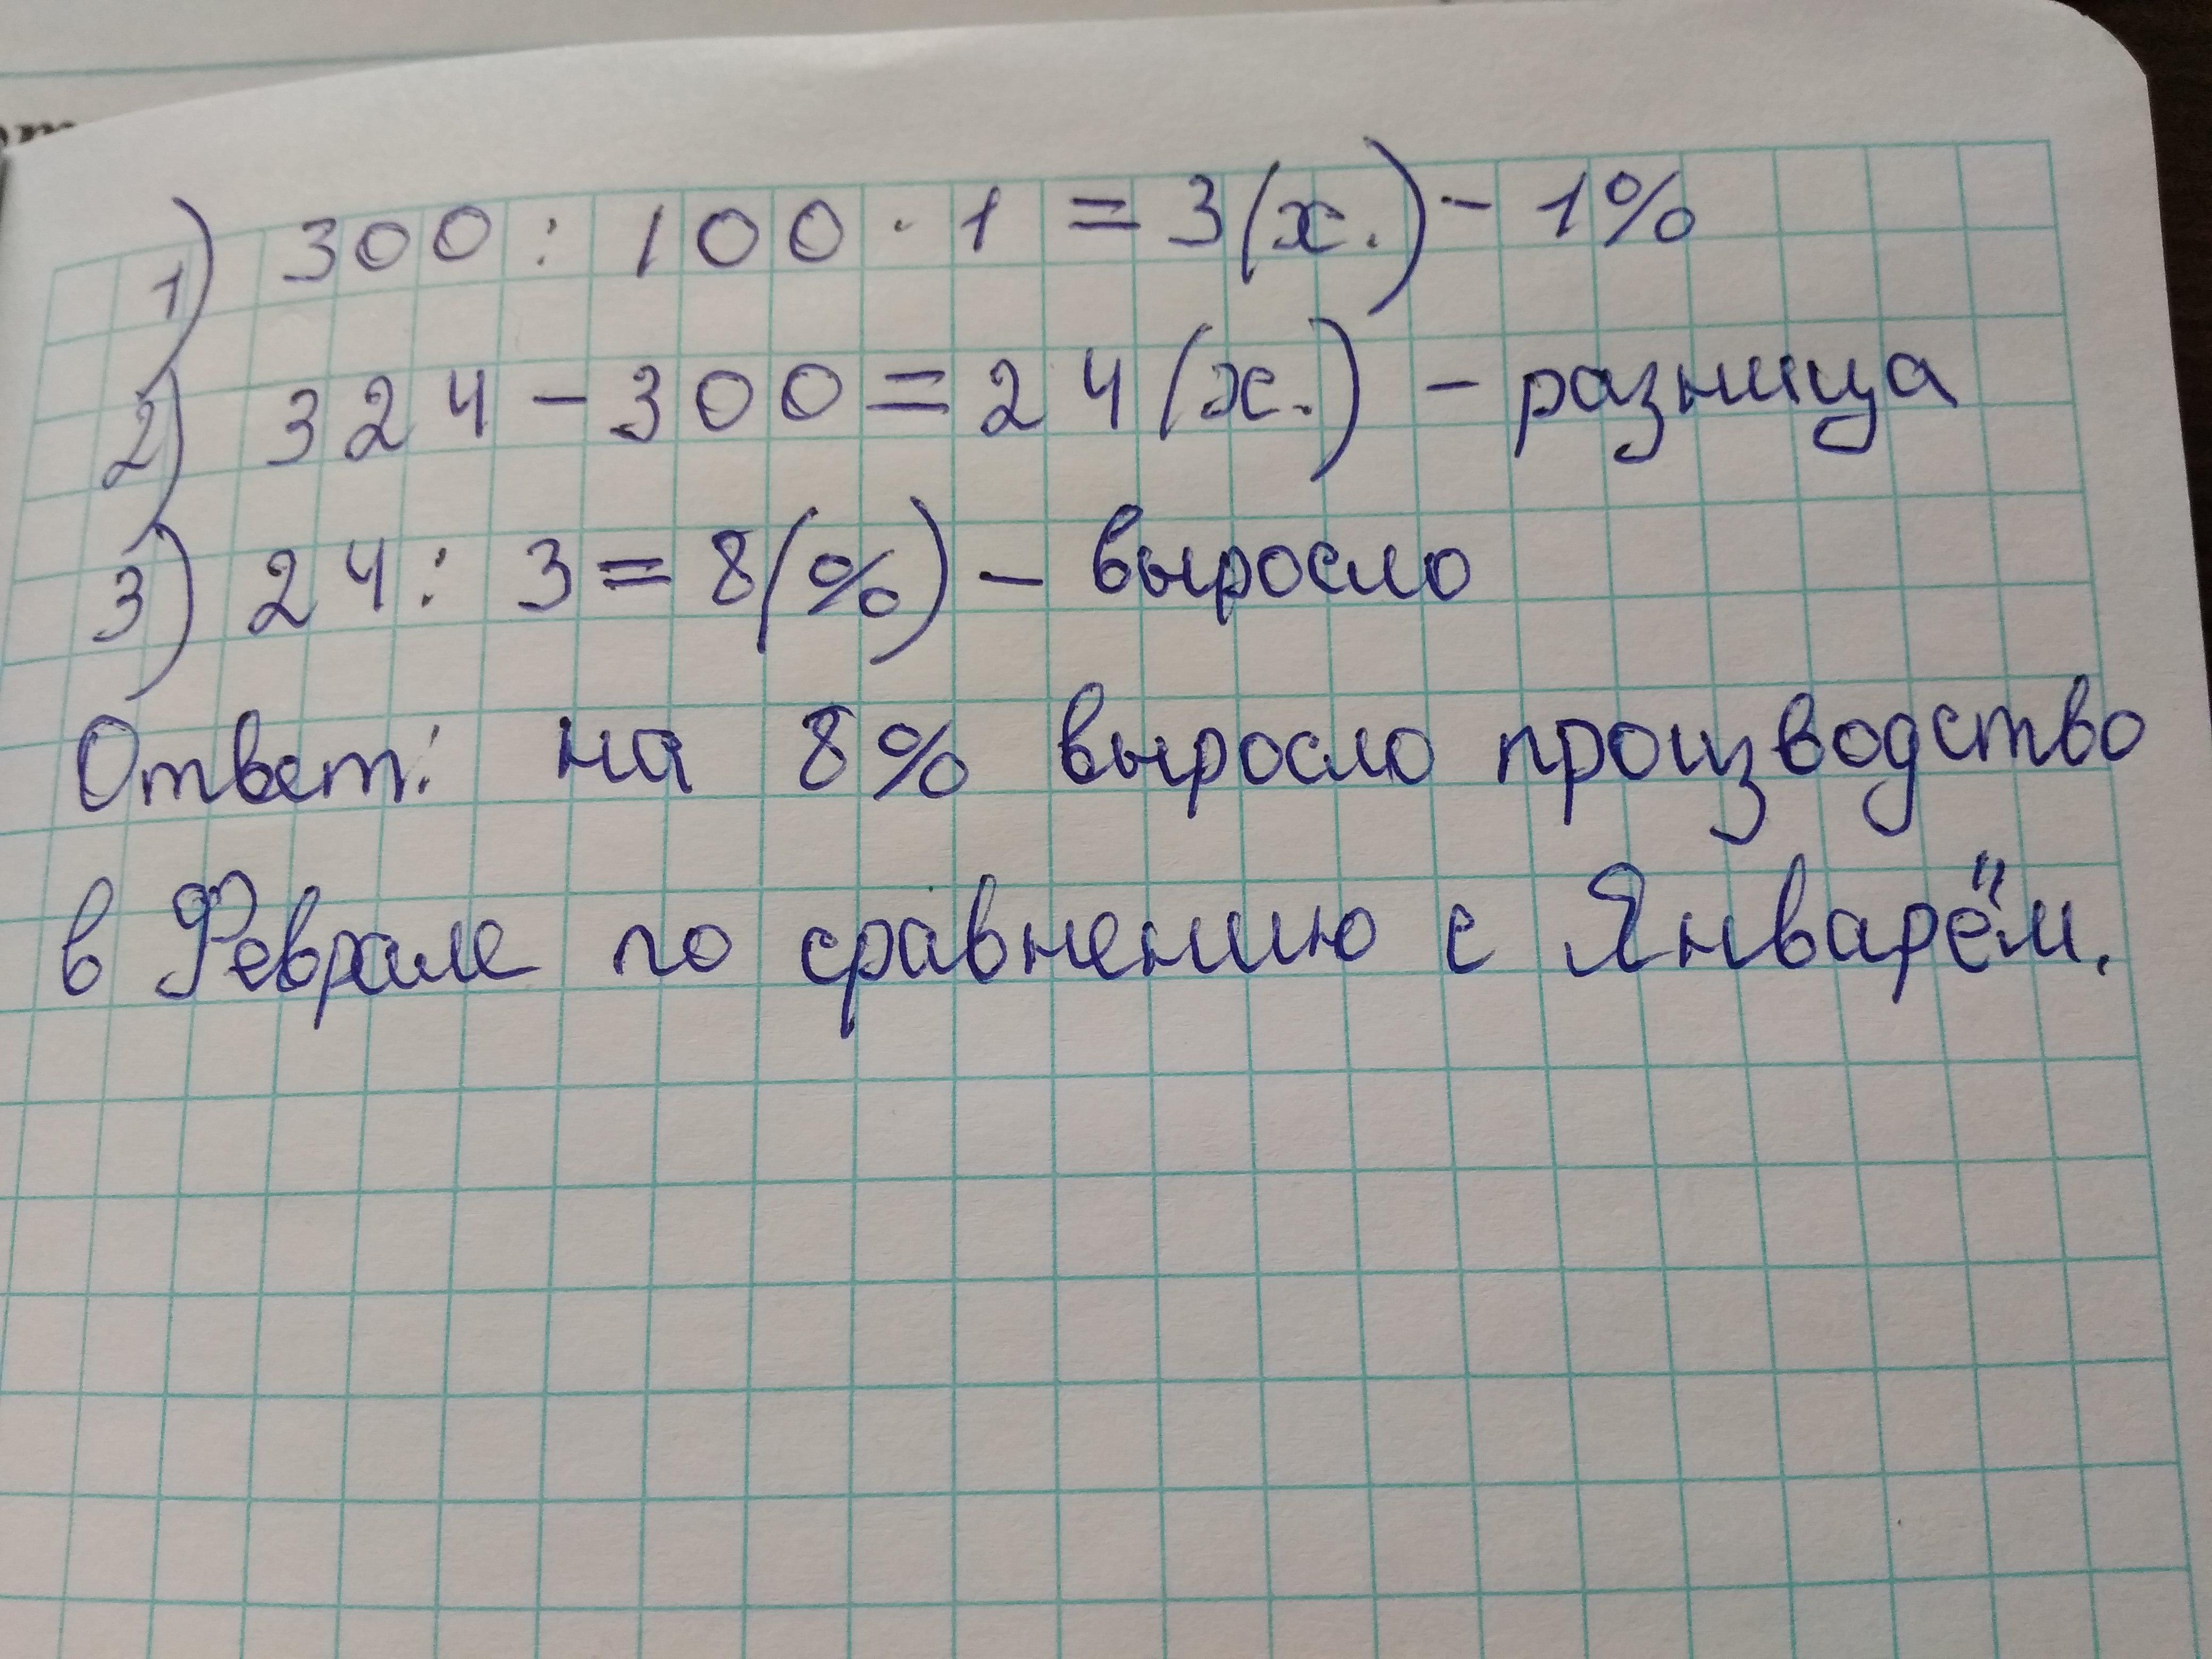 1) 300 : 100 · 1 = 3 (х.) - 1%
2) 324 - 300 = 24 (х.) - разница
3) 24 : 3 = 8 (%) - выросло
Ответ: на 8% выросло производство
в Феврале по сравнению с Январём.